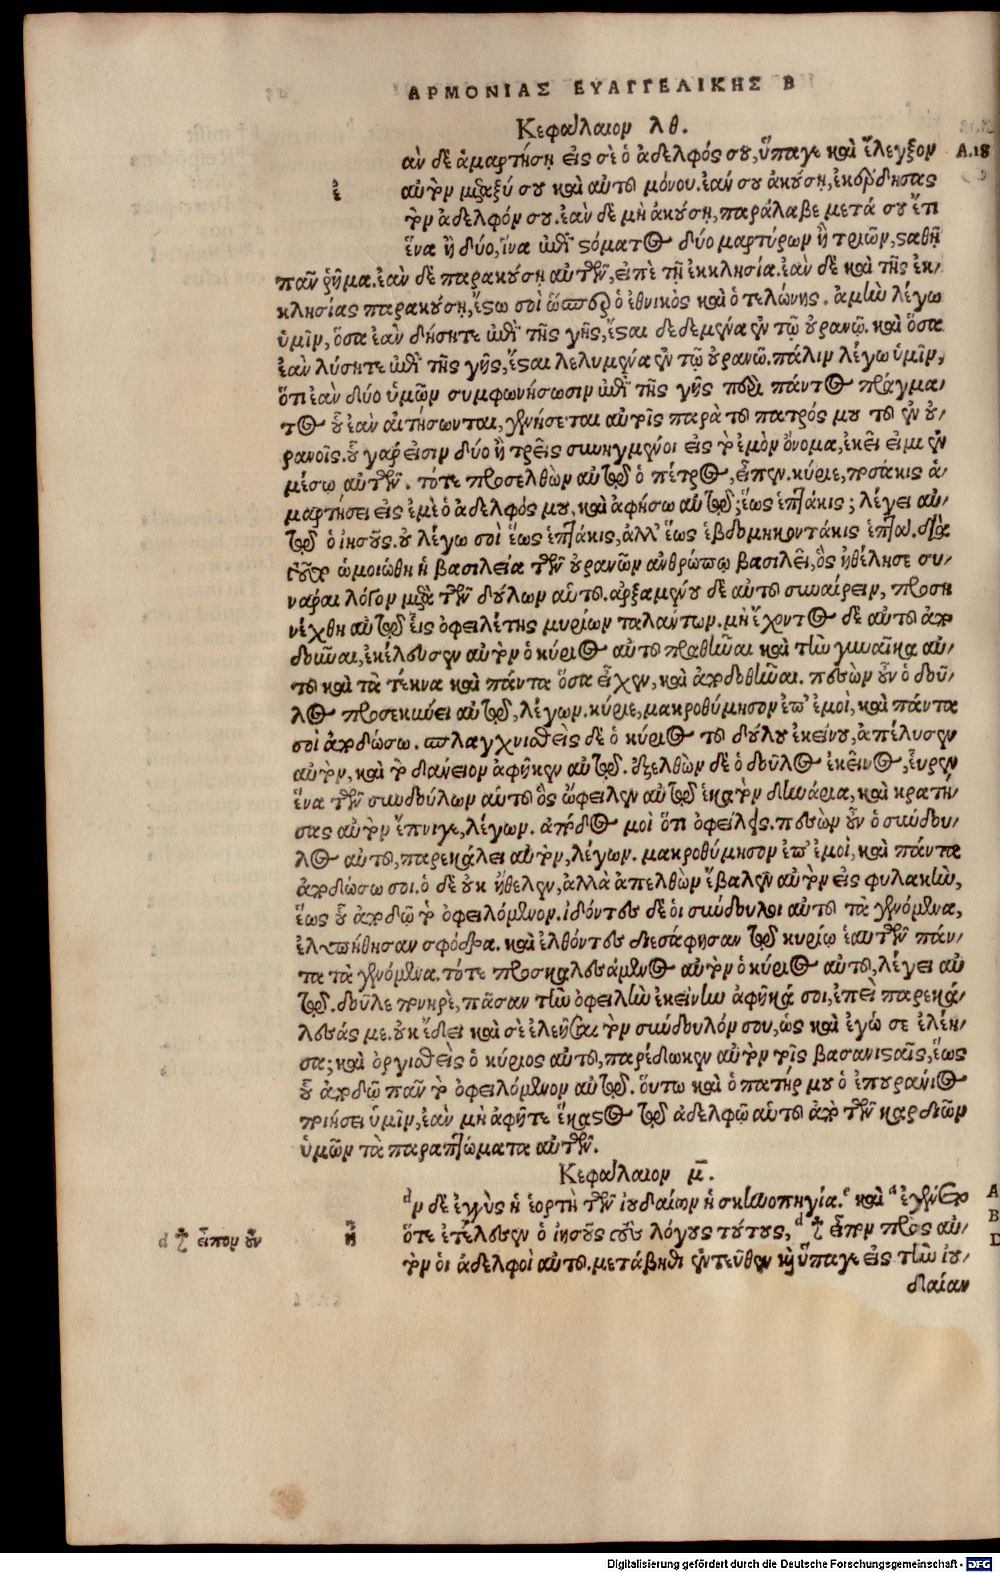 ΑΡΜΟΝΙΑΣ ΕΥΑΓΓΕΛΙΚΗΣ Β
Κεφάλαιον λθ.
ἐ
ὰν δὲ ἁμαρτήσῃ εἰς σὲ ὁ ἀδελφός σου, ὕπαγε καὶ ἔλεγξον A.18
αὐτὸν μεταξύ σου καὶ αὐτοῦ μόνου. ἐάν σου ἀκούσῃ, ἐκέρδησας
τὸν ἀδελφόν σου. ἐὰν δὲ μὴ ἀκούσῃ, παράλαβε μετά σου ἔτι
ἕνα ἢ δύο, ἵνα ἐπὶ στόματος δύο μαρτύρων ἢ τριῶν, σταθῇ
πᾶν ῥῆμα. ἐὰν δὲ παρακούσῃ αὐτῶν, εἰπὲ τῇ ἐκκλησίᾳ. ἐὰν δὲ καὶ τῆς ἐκ-
κλησίας παρακούσῃ, ἔστω σοὶ ὥσπερ ὁ ἐθνικὸς καὶ ὁ τελώνης. ἀμὴν λέγω
ὑμῖν, ὅσα ἐὰν δήσητε ἐπὶ τῆς γῆς, ἔσται δεδεμένα ἐν τῷ οὐρανῷ. καὶ ὅσα
ἐὰν λύσητε ἐπὶ τῆς γῆς, ἔσται λελυμένα ἐν τῷ οὐρανῷ. πάλιν λέγω ὑμῖν,
ὅτι ἐὰν δύο ὑμῶν συμφωνήσωσιν ἐπὶ τῆς γῆς περὶ παντὸς πράγμα-
τος οὗ ἐὰν αἰτήσωνται, γενήσεται αὐτοῖς παρὰ τοῦ πατρός μου τοῦ ἐν οὐ-
ρανοῖς. οὗ γάρ εἰσιν δύο ἢ τρεῖς συνηγμένοι εἰς τὸ ἐμὸν ὄνομα, ἐκεῖ εἰμι ἐν
μέσῳ αὐτῶν. τότε προσελθὼν αὐτῷ ὁ πέτρος, εἶπεν. κύριε, ποσάκις ἁ-
μαρτήσει εἰς ἐμὲ ὁ ἀδελφός μου, καὶ ἀφήσω αὐτῷ; ἕως ἑπτάκις; λέγει αὐ-
τῷ ὁ ἰησοῦς. οὐ λέγω σοὶ ἕως ἑπτάκις, ἀλλ' ἕως ἑβδομηκοντάκις ἑπτά. διὰ
τοῦτο ὡμοιώθη ἡ βασιλεία τῶν οὐρανῶν ἀνθρώπῳ βασιλεῖ, ὃς ἠθέλησε συ-
νάραι λόγον μετὰ τῶν δούλων αὐτοῦ. ἀρξαμένου δὲ αὐτοῦ συναίρειν, προση
νέχθη αὐτῷ εἷς ὀφειλέτης μυρίων ταλάντων. μὴ ἔχοντος δὲ αὐτοῦ ἀπο
δοῦναι, ἐκέλευσεν αὐτὸν ὁ κύριος αὐτοῦ πραθῆναι καὶ τὴν γυναῖκα αὐ-
τοῦ καὶ τὰ τέκνα καὶ πάντα ὅσα εἶχεν, καὶ ἀποδοθῆναι. πεσὼν οὖν ὁ δοῦ-
λος προσεκύνει αὐτῷ, λέγων. κύριε, μακροθύμησον ἐπ' ἐμοὶ, καὶ πάντα
σοὶ ἀποδώσω. σπλαγχνισθεὶς δὲ ὁ κύριος τοῦ δούλου ἐκείνου, ἀπέλυσεν
αὐτὸν, καὶ τὸ δάνειον ἀφῆκεν αὐτῷ. ἐξελθὼν δὲ ὁ δοῦλος ἐκεῖνος, εὗρεν
ἕνα τῶν συνδούλων αὐτοῦ ὃς ὤφειλεν αὐτῷ ἑκατὸν δηνάρια, καὶ κρατή-
σας αὐτὸν ἔπνιγε, λέγων. ἀπόδος μοι ὅτι ὀφείλεις. πεσὼν οὖν ὁ σύνδου-
λος αὐτοῦ, παρεκάλει αὐτὸν, λέγων. μακροθύμησον ἐπ' ἐμοὶ, καὶ πάντα
ἀποδώσω σοι. ὁ δὲ οὐκ ἤθελεν, ἀλλὰ ἀπελθὼν ἔβαλεν αὐτὸν εἰς φυλακὴν,
ἕως οὗ ἀποδῷ τὸ ὀφειλόμενον. ἰδόντες δὲ οἱ σύνδουλοι αὐτοῦ τὰ γενόμενα,
ἐλυπήθησαν σφόδρα. καὶ ἐλθόντες διεσάφησαν τῷ κυρίῳ ἑαυτῶν πάν-
τα τὰ γενόμενα. τότε προσκαλεσάμενος αὐτὸν ὁ κύριος αὐτοῦ, λέγει αὐ
τῷ. δοῦλε πονηρὲ, πᾶσαν τὴν ὀφειλὴν ἐκείνην ἀφῆκά σοι, ἐπεὶ παρεκά-
λεσάς με. οὐκ ἔδει καὶ σὲ ἐλεῆσαι τὸν σύνδουλόν σου, ὡς καὶ ἐγώ σε ἐλέη-
σα; καὶ ὀργισθεὶς ὁ κύριος αὐτοῦ, παρέδωκεν αὐτὸν τοῖς βασανισταῖς, ἕως
οὗ ἀποδῷ πᾶν τὸ ὀφειλόμενον αὐτῷ. οὕτω καὶ ὁ πατήρ μου ὁ ἐπουράνιος
ποιήσει ὑμῖν, ἐὰν μὴ ἀφῆτε ἕκαστος τῷ ἀδελφῷ αὐτοῦ ἀπὸ τῶν καρδιῶν
ὑμῶν τὰ παραπτώματα αὐτῶν.
Κεφάλαιον μ.
ἦ
d ν δὲ ἐγγὺς ἡ ἑορτὴ τῶν ἰουδαίων ἡ σκηνοπηγία. c καὶ a ἐγένετο A
ὅτε ἐτέλεσεν ὁ ἰησοῦς τοὺς λόγους τούτους, d εἶπον πρὸς αὐ- B
d εἶπον οὖν
τὸν οἱ ἀδελφοὶ αὐτοῦ. μετάβηθι ἐντεῦθεν καὶ ὕπαγε εἰς τὴν ἰου- D
δαίαν
Digitalisierung gefördert durch die Deutsche Forschungsgemeinschaft - DFG